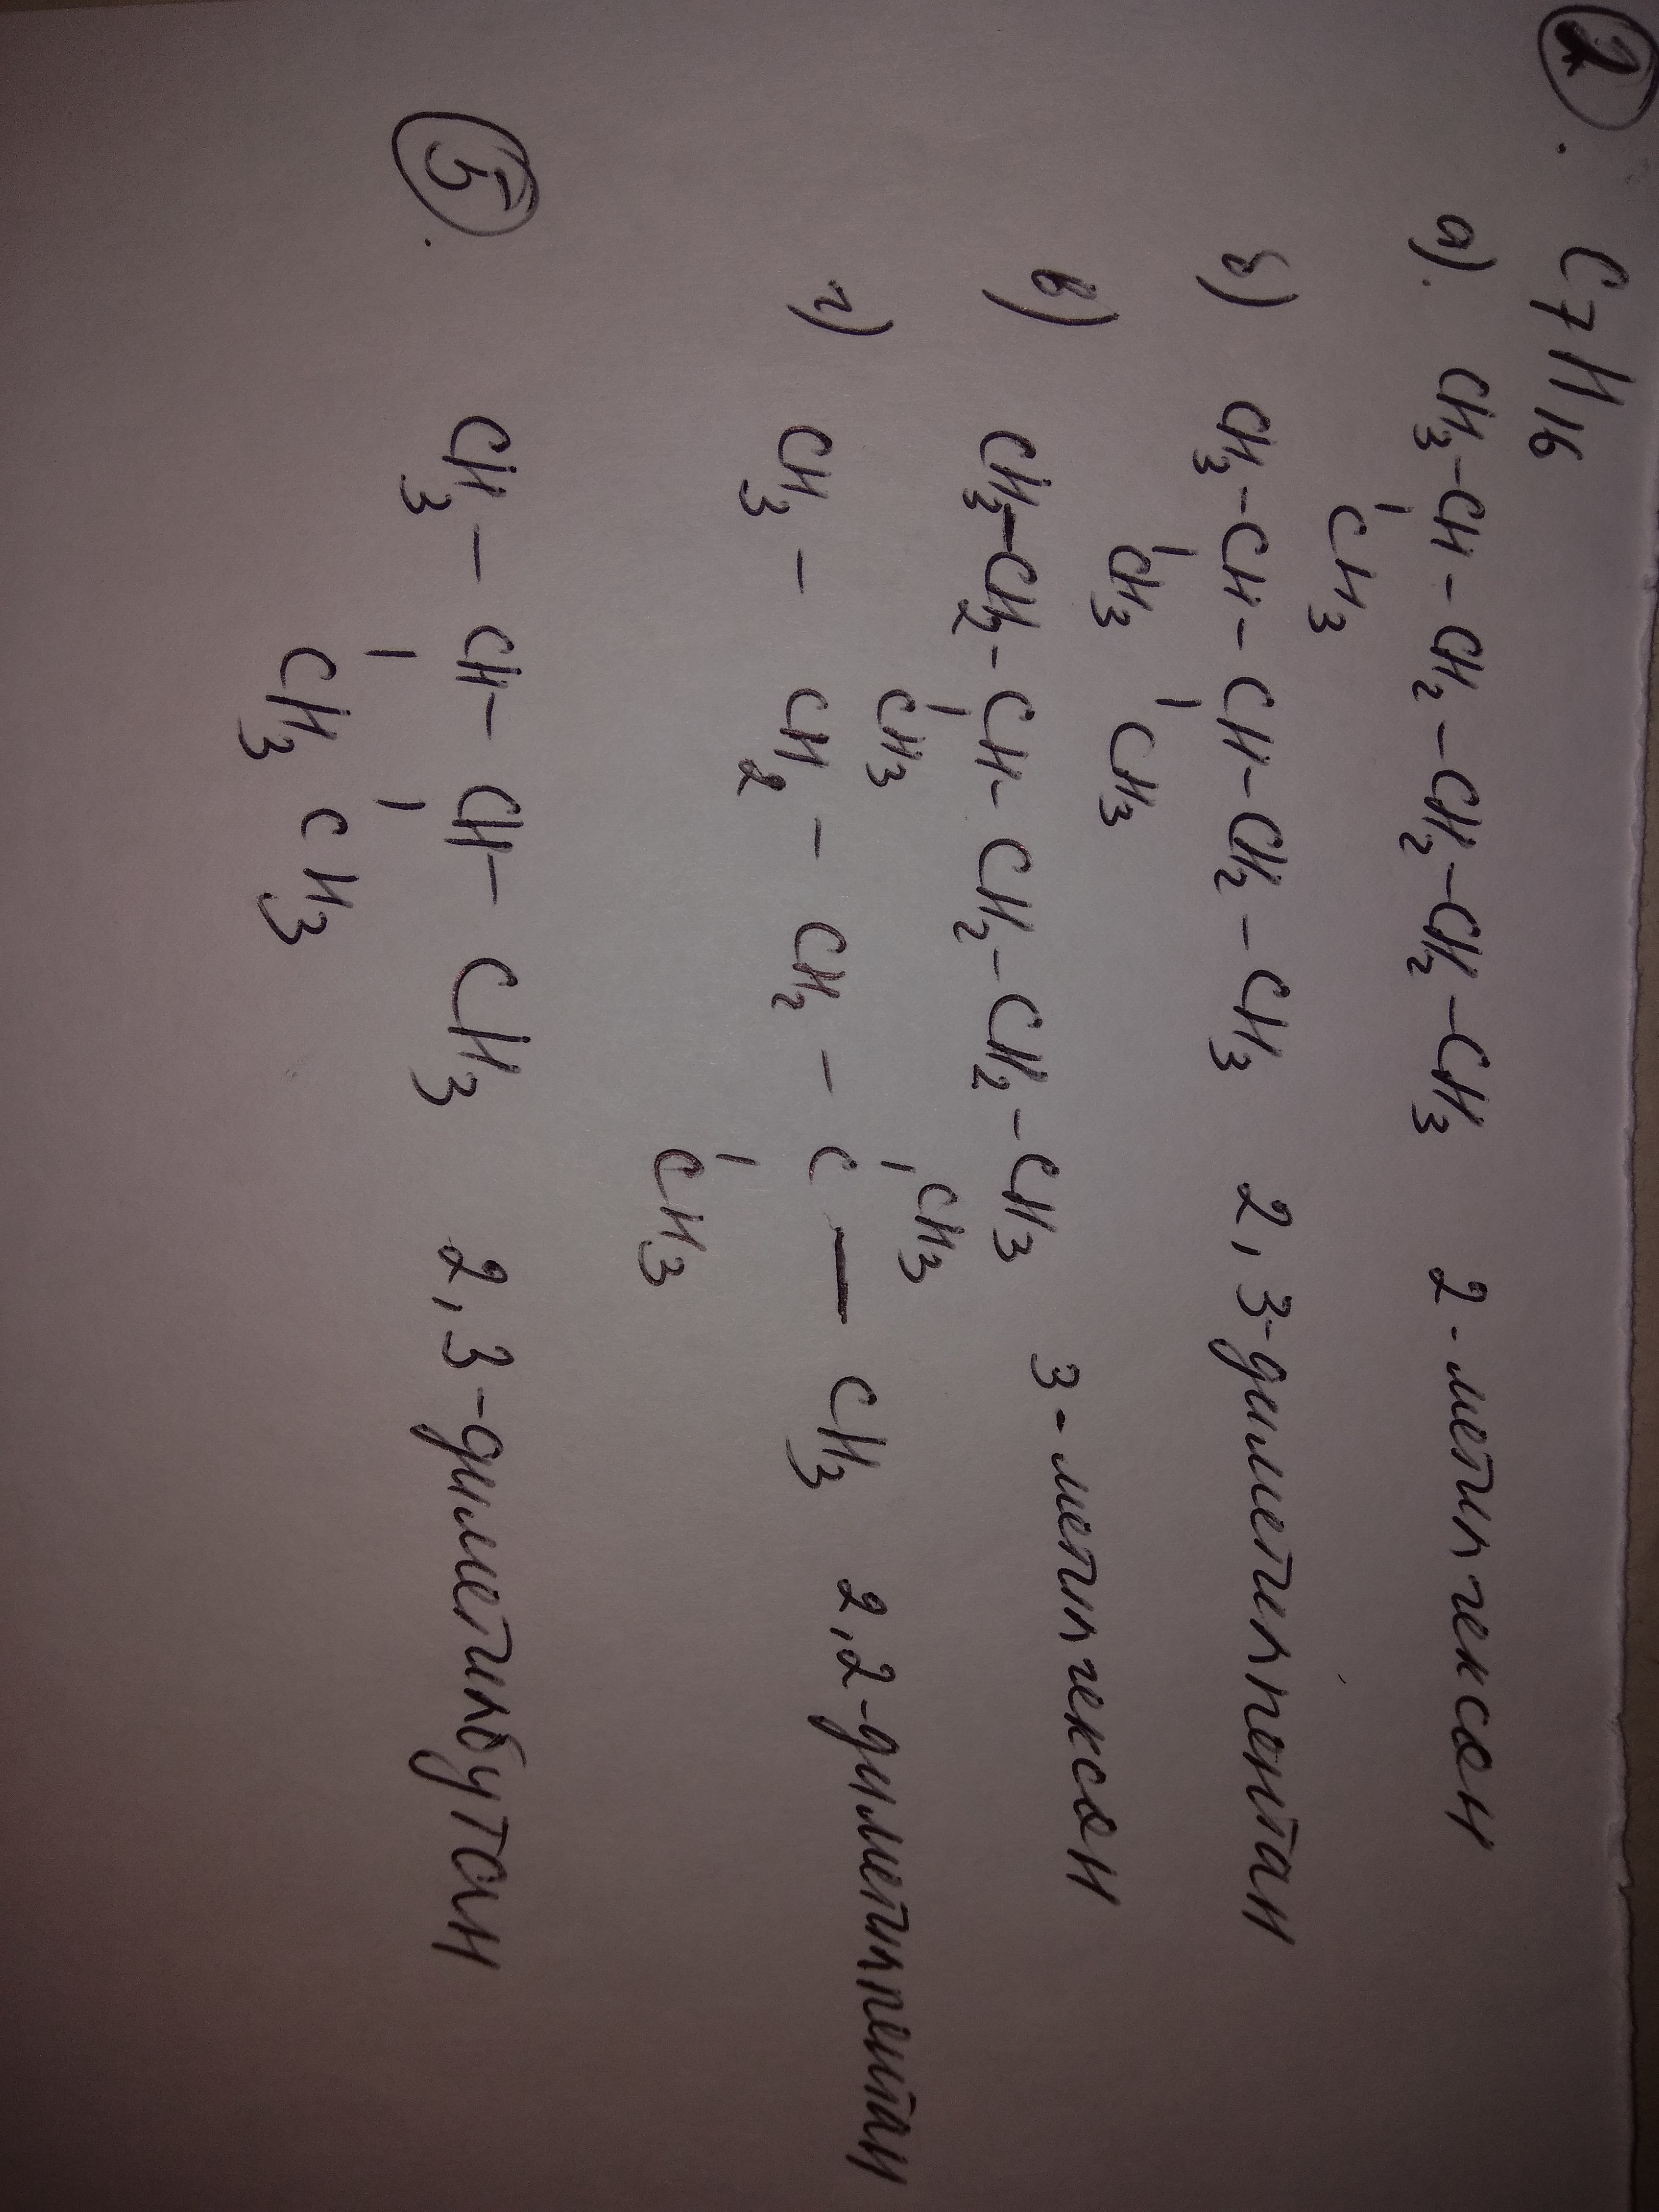 2. C7H16
а). CH3-CH-CH2-CH2-CH2-CH3 2-метилгексан
CH3
б) CH3-CH-CH-CH2-CH3 2,3-диметилпентан
CH3 CH3
в) CH3-CH2-CH-CH2-CH2-CH3 3-метилгексан
CH3
CH3
г) CH3 - CH2 - CH2 - C - CH3 2,2-диметилпентан
CH3
5. CH3 - CH - CH - CH3 2,3-диметилбутан
CH3 CH3